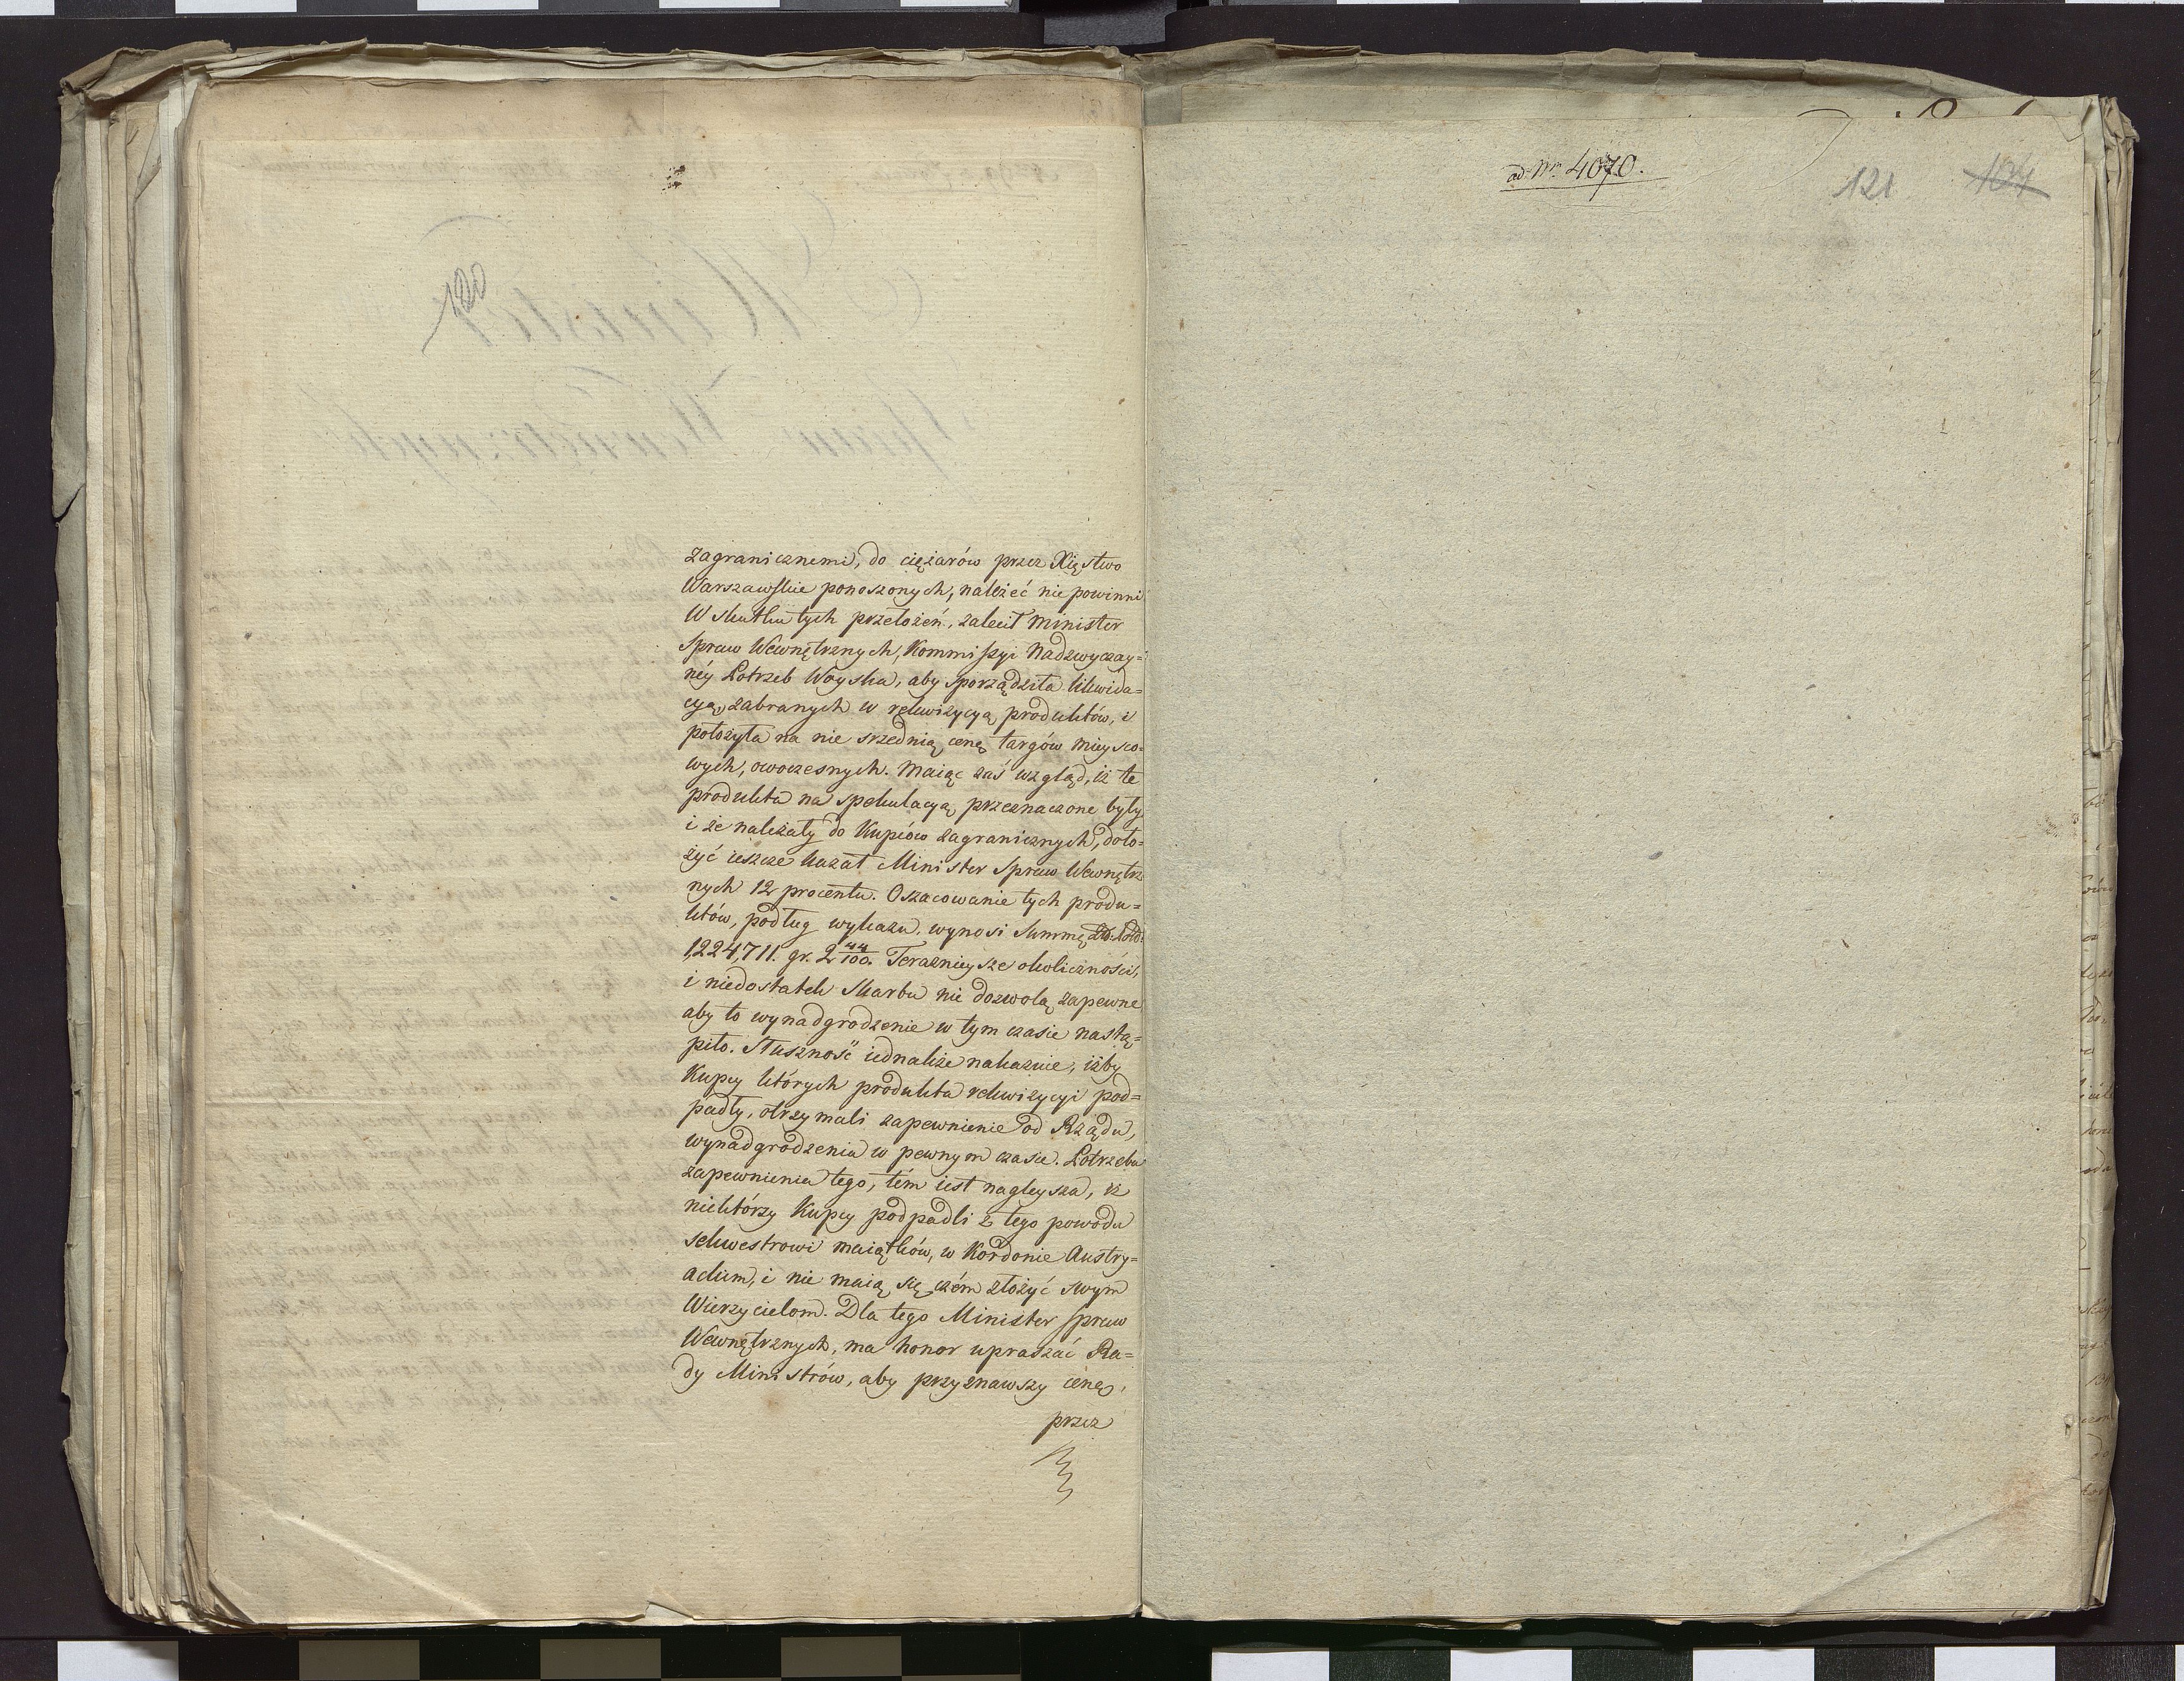 120
zagranicznemi, do ciężarów przez Xięstwo
Warszawskie ponoszonych, należeć nie powinni
W skutku tych przełożeń, zalecił Minister
Spraw Wewnętrznych, Kommissyi Nadzwyczay=
néy Potrzeb Woyska, aby sporządziła likwida=
cyą, zabranych w rekwizycyą produktów, i
położyła na nie srzednią cenę targów mieysco=
wych, owoczesnych. Maiąc zaś wzgląd, iż te
produkta na spekulacyą przeznaczone były
i że należały do Kupców zagranicznych, doło=
żyć ieszcze kazał Minister Spraw Wewnętrz
nych 12 procentu. Oszacowanie tych produ=
któw, podług wykazu, wynosi Summę
1,224,711. gr. 2 44/100. Teraznieysze okoliczności,
i niedostatek Skarbu nie dozwolą zapewne
aby to wynadgrodzenie w tym czasie nastą=
piło. Słuszność iednakże nakazuie, iżby
Kupcy których produkta rekwizycyi pod=
padły, otrzymali zapewnienie od Rządu,
wynadgrodzenia w pewnym czasie. Potrzeba
zapewnienia tego, tém iest nagleysza, iż
niektórzy Kupcy podpadli z tego powodu
sekwestrowi maiątków, w Kordonie Austry=
ackim, i nie maią się czém złożyć swym
Wierzycielom. Dla tego Minister Spraw
Wewnętrznych, ma honor upraszać Ra=
dy Ministrów, aby przyznawszy cenę,
przez
ad Nr. 4070.
121 104